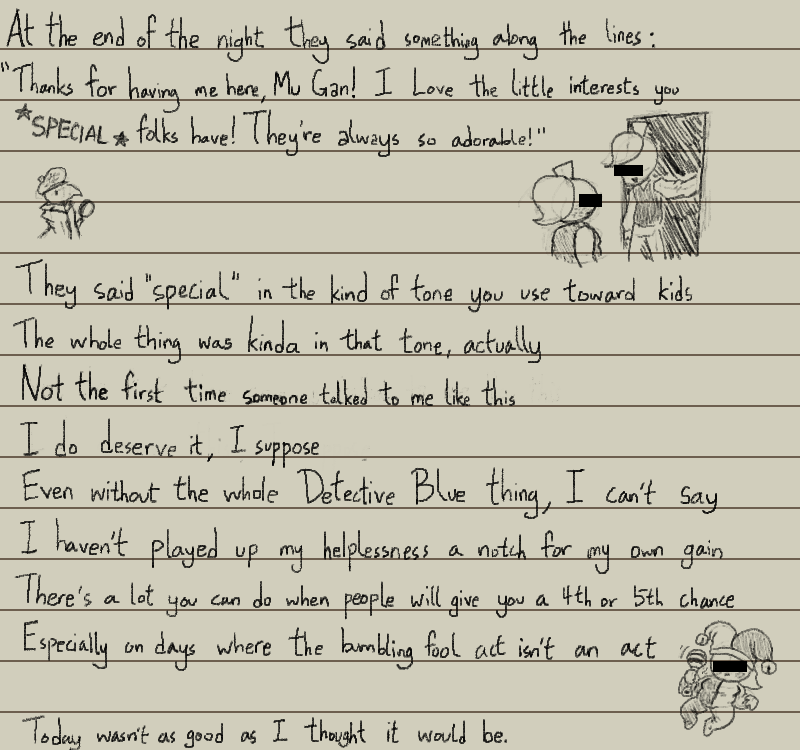 At the end of the night they said something along the lines:
"Thanks for having me here, Mu Gan! I Love the little interests you
*SPECIAL* folks have! They're always so adorable!"
They said "special" in the kind of tone you use toward kids
The whole thing was kinda in that tone, actually
Not the first time someone talked to me like this
I do deserve it, I suppose
Even without the whole Detective Blue thing, I can't say
I haven't played up my helplessness a notch for my own gain
There's a lot you can do when people will give you a 4th or 5th chance
Especially on days where the bumbling fool act isn't an act
Today wasn't as good as I thought it would be.